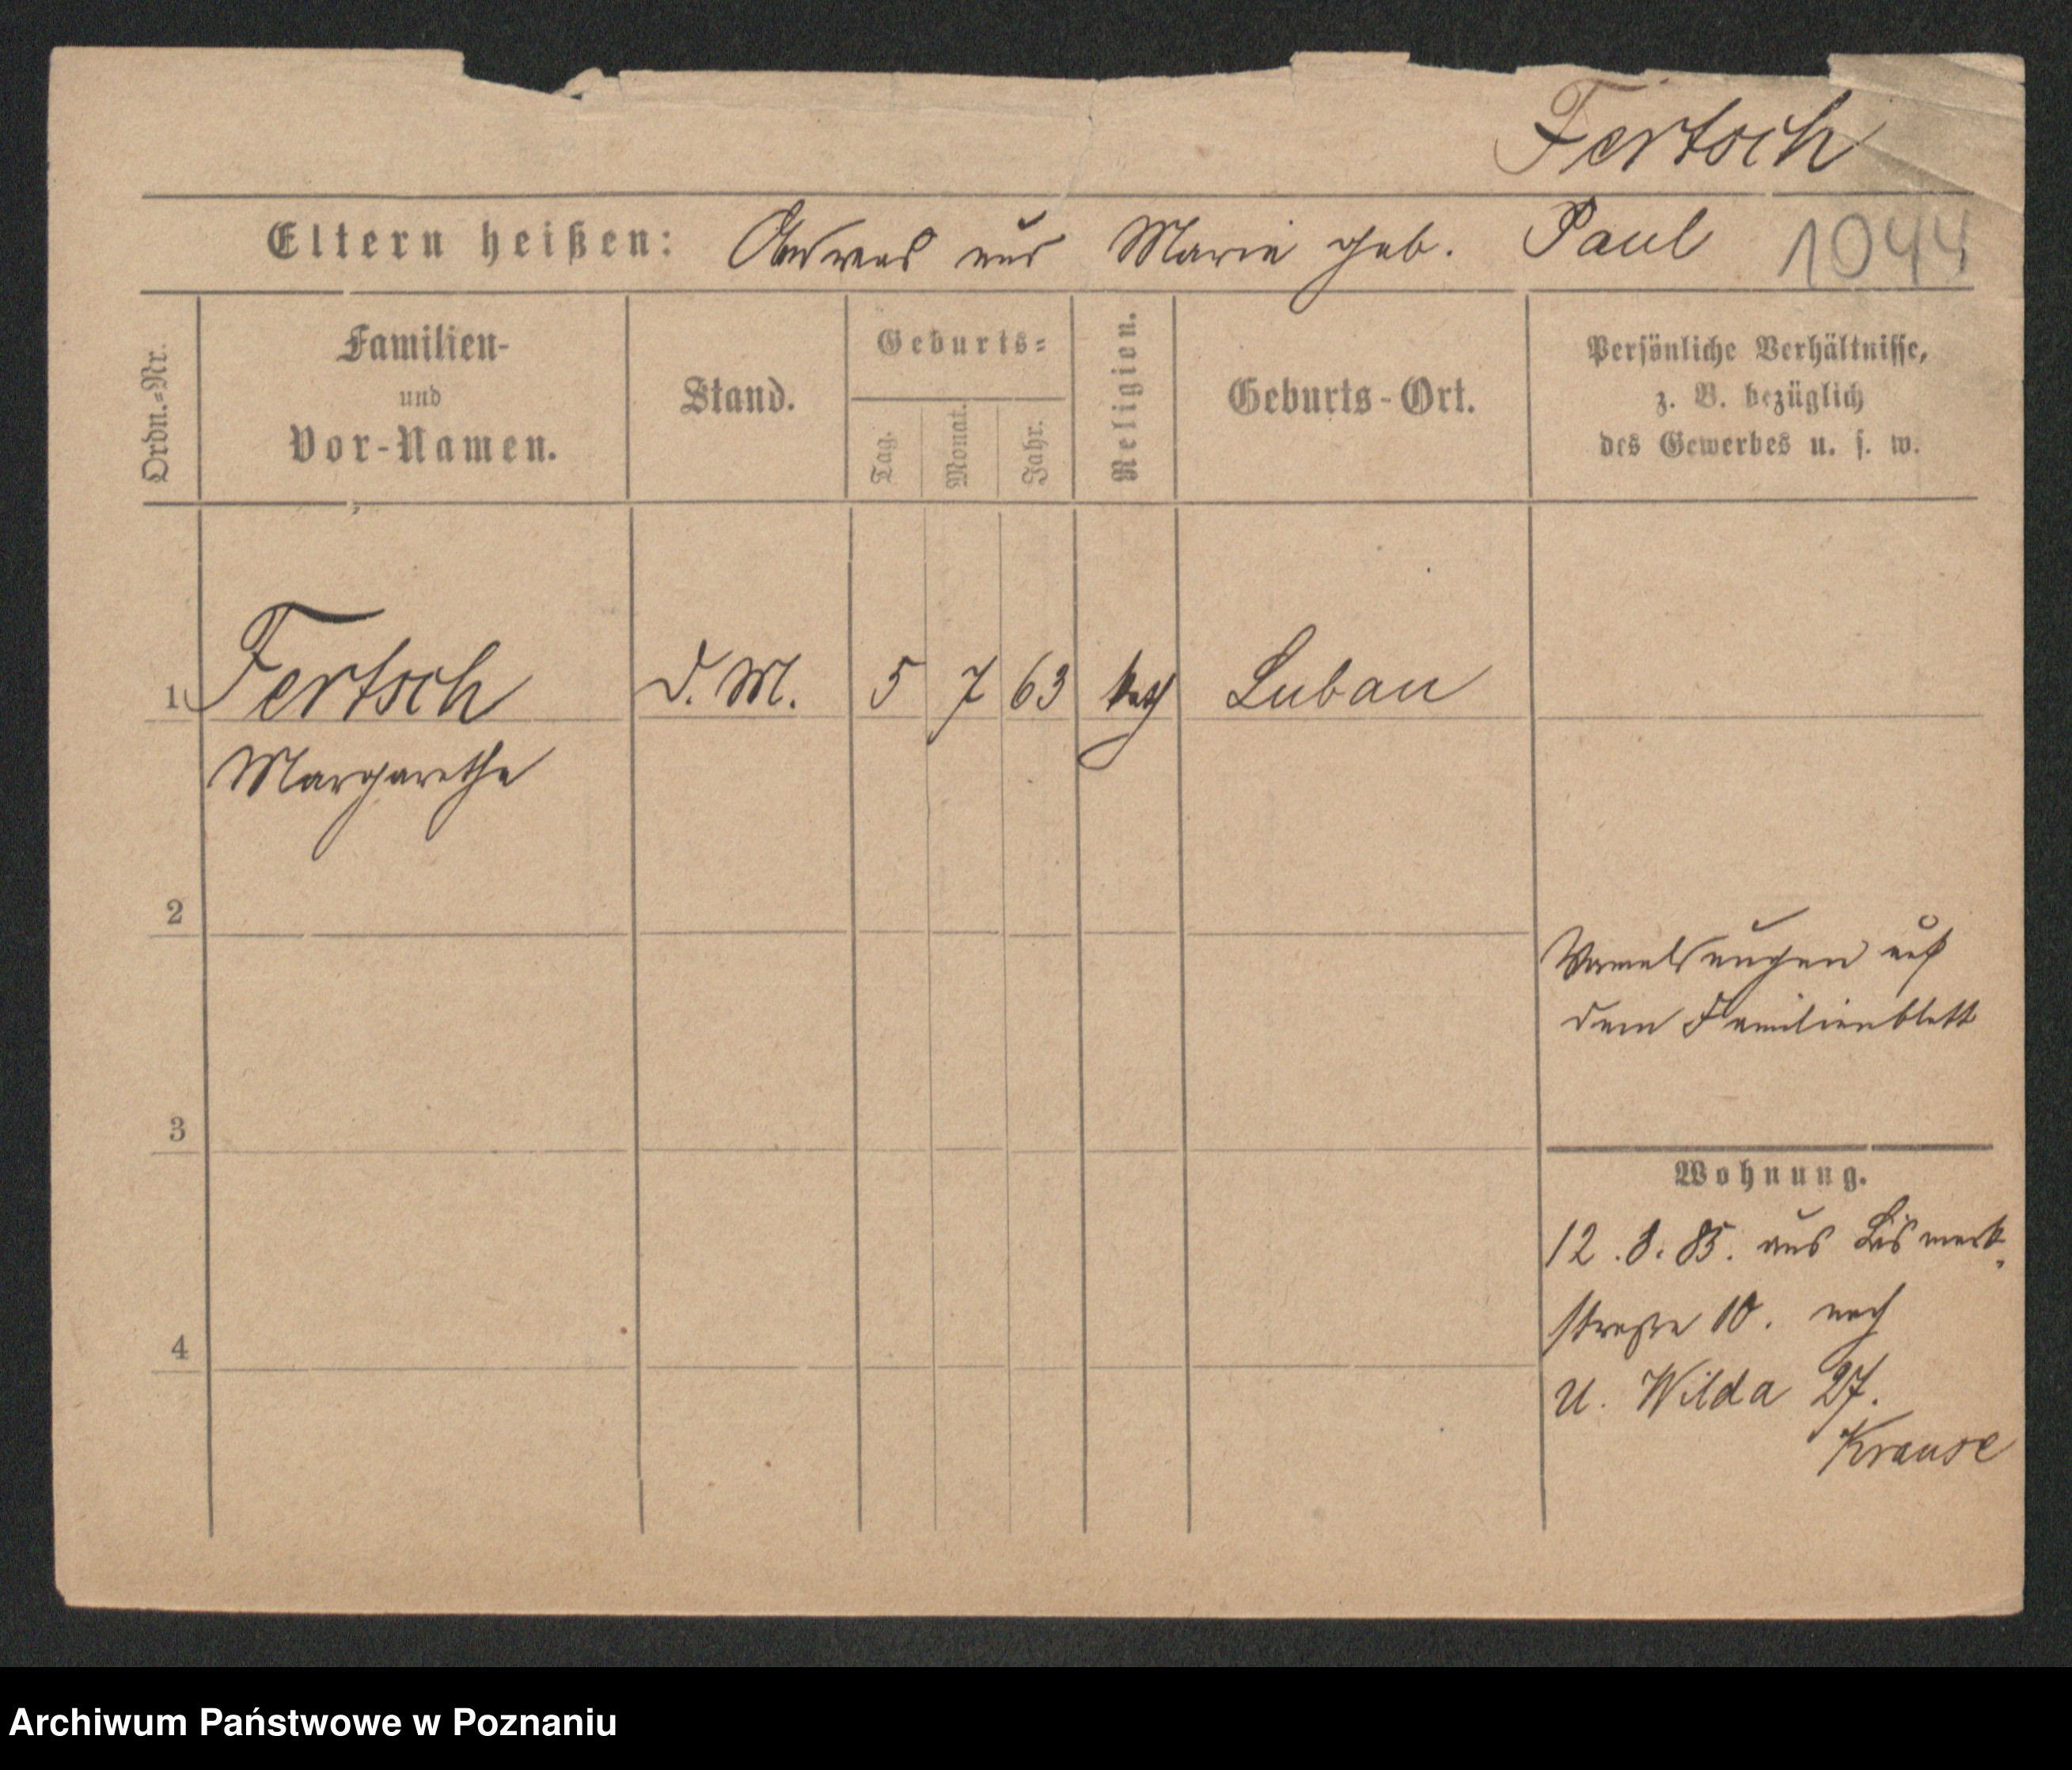 Fertsch
Eltern heißen: Andreas und Marie geb. Paul 1044
Ordn.=Nr.
Familien-
und
Vor-Namen.
Stand.
Geburts=
Tag.
Monat.
Jahr.
Religion.
Geburts-Ort.
Persönliche Verhältnisse,
z. B. bezüglich
des Gewerbes u. s. w.
1 Fertsch d. M. 5 7 63 kath Luban
Margarethe
2
auf
dem Familienblatt
3
Wohnung.
12.8.85. aus Bismark
straße 10. nach
4
U. Wilda 27.
Krause
Archiwum Państwowe w Poznaniu